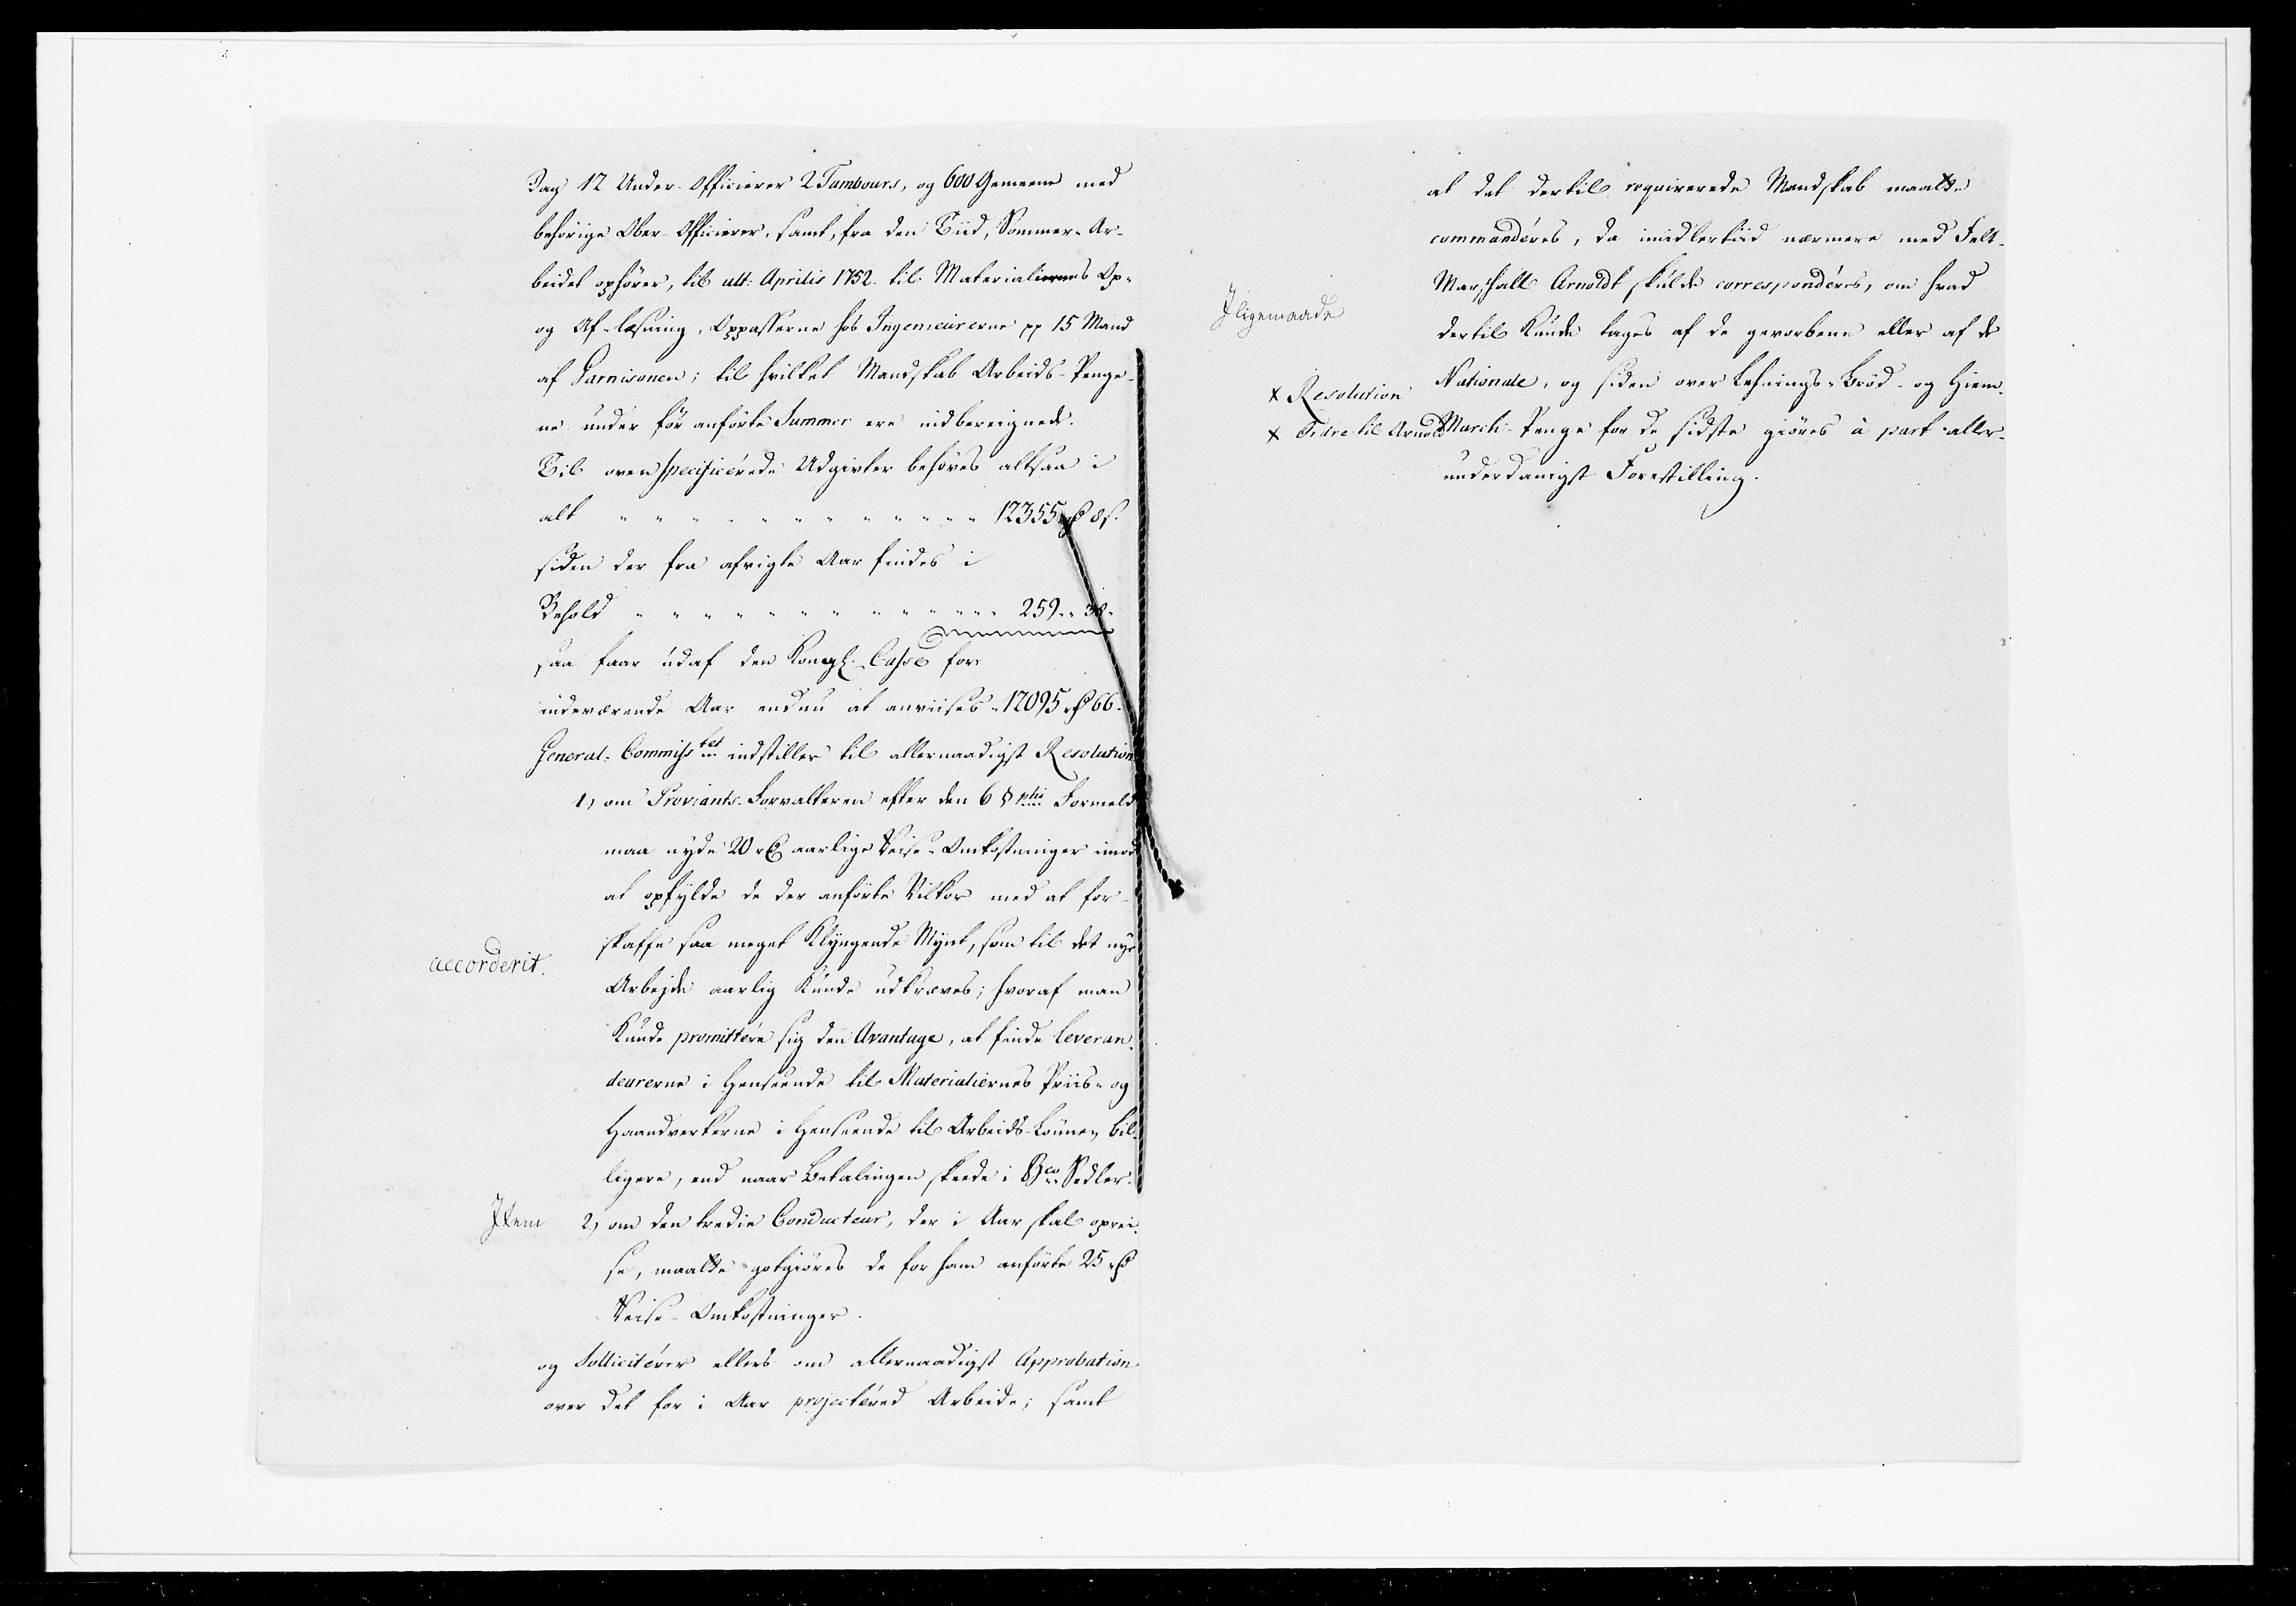 Dag 12 Under-Officierer 2 Tambours, og 600 Gemeene med
behørige Ober-Officierer, samt, fra den Tiid, Sommer-Ar-
beidet ophører, til ult: Aprilis 1752. til Materialiernes Op-
og Af-læsning, Oppasserne hos Ingenieurerne pp 15 Mand
af Garnisonen; til hvilket Mandskab Arbeids-Penge-
ne under før anførte Summer ere indbereignede.
Til ovenspecificérede Udgivter behøves altsaa i
alt " " " " " " " " " " " 12355 rd 8 s.
siden der fra afvigte Aar findes i
Behold " " " " " " " " " " " 259 " 38.
saa faar udaf den Kongl. Casse for
indeværende Aar endnu at anviises " 12095 rd 66.
General-Commiss tet indstiller til allernaadigst Resolution
1, om Proviants-Forvalteren efter den 6 § phi Formeld
maa nyde 20 rd aarlige Reise-Omkostninger imod
at opfylde de der anførte Vilkor med at for-
skaffe saa meget Klyngende Mynt, som til det nye
accorderit.
Arbejde aarlig Kunde udkræves; hvoraf man
Kunde promittére sig den Avantage, at finde leveran-
deurerne i Henseende til Materialiernes Priis- og
Haandverkerne i Henseende til Arbeids-Lønnen bil-
ligere, end naar Betalingen skeede i Bco Sedler.
Item 2, om den tredie Conducteur, der i Aar skal oprei-
se, maatte gotgiøres de for ham anførte 25 rd
Reise-Omkostninger.
og Sollicitérer ellers om allernaadigst Approbation
over det for i Aar projectéred Arbeide; samt
at det dertil requirerede Mandskab maatte
commandéres, da imidlertiid nærmere med Felt-
Marschall Arnoldt skulde correspondéres, om hvad
Iligemaade
dertil Kunde tages af de gevorbene eller af de
Nationale, og siden over Lehnings-Brød- og Hiem-
x Resolution
March-Penge for de sidste giøres à part aller-
x Ordre til Arnold
underdanigst Forestilling.